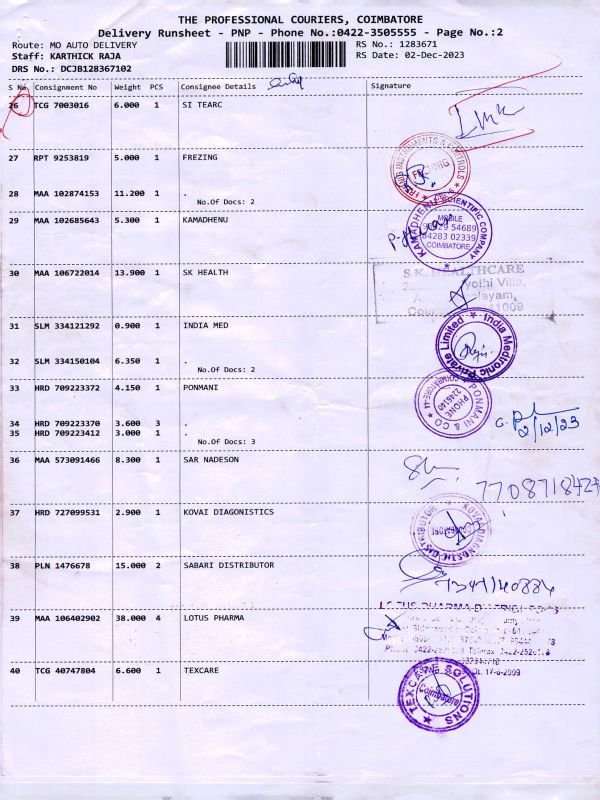 THE PROFESSIONAL COURIERS, COIMBATORE
Delivery Runsheet - PNP - Phone No.:0422-3505555 - Page No.:2
Route: MO AUTO DELIVERY RS No.: 1283671
Staff: KARTHICK RAJA RS Date: 02-Dec-2023
DRS No.: DCJB128367102
S No. Consignment No Weight PCS Consignee Details Signature
26 TCG 7003016 6.000 1 SI TEARC
27 RPT 9253819 5.000 1 FREZING
28 MAA 102874153 11.200 1 .
No.Of Docs: 2
29 MAA 102685643 5.300 1 KAMADHENU
KAMADHENU SCIENTIFIC COMPANY
MOBILE
84283 02339
COIMBATORE
30 MAA 106722014 13.900 1 SK HEALTH
S.K. HEALTHCARE
31 SLM 334121292 0.900 1 INDIA MED
India Medtronic Private Limited
32 SLM 334150104 6.350 1 .
No.Of Docs: 2
33 HRD 709223372 4.150 1 PONMANI
PONMANI & CO
PHONE
COIMBATORE-44
34 HRD 709223370 3.600 3 .
2/12/23
35 HRD 709223412 3.000 1 .
No.Of Docs: 3
36 MAA 573091466 8.300 1 SAR NADESON
37 HRD 727099531 2.900 1 KOVAI DIAGONISTICS
KOVAI DIAGNOSTIC DISTRIBUTOR
38 PLN 1476678 15.000 2 SABARI DISTRIBUTOR
39 MAA 106402902 38.000 4 LOTUS PHARMA
40 TCG 40747804 6.600 1 TEXCARE
TEXCARE SOLUTIONS
Coimbatore